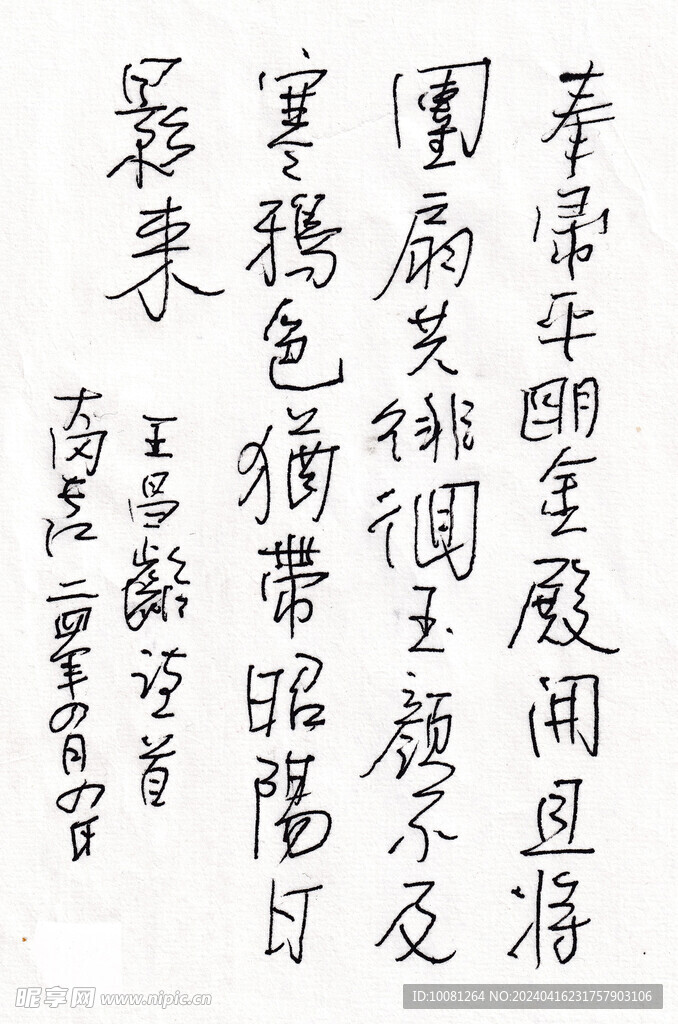 奉帚平明金殿開且将
團扇共徘徊玉顏不及
寒鴉色猶帶昭陽日
影来
王昌齡詩首
二四年四月九日
昵享网 www.nipic.cn
ID:10081264 NO:20240416231757903106